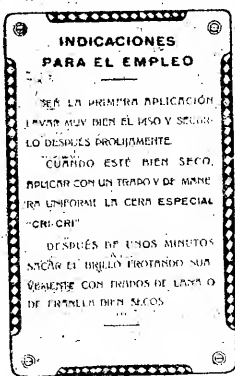 INDICACIONES
PARA EL EMPLEO
SEA LA PRIMERA APLICACIÓN
LAVAR MUY BIEN EL PISO Y SECAR-
LO DESPUÉS PROLIJAMENTE.
CUANDO ESTÉ BIEN SECO,
APLICAR CON UN TRAPO Y DE MANE
RA UNIFORME LA CERA ESPECIAL
"CRI-CRI"
DESPUÉS DE UNOS MINUTOS
SACAR EL BRILLO FROTANDO SUA
VEMENTE CON TRAPOS DE LANA O
DE FRANELA BIEN SECOS